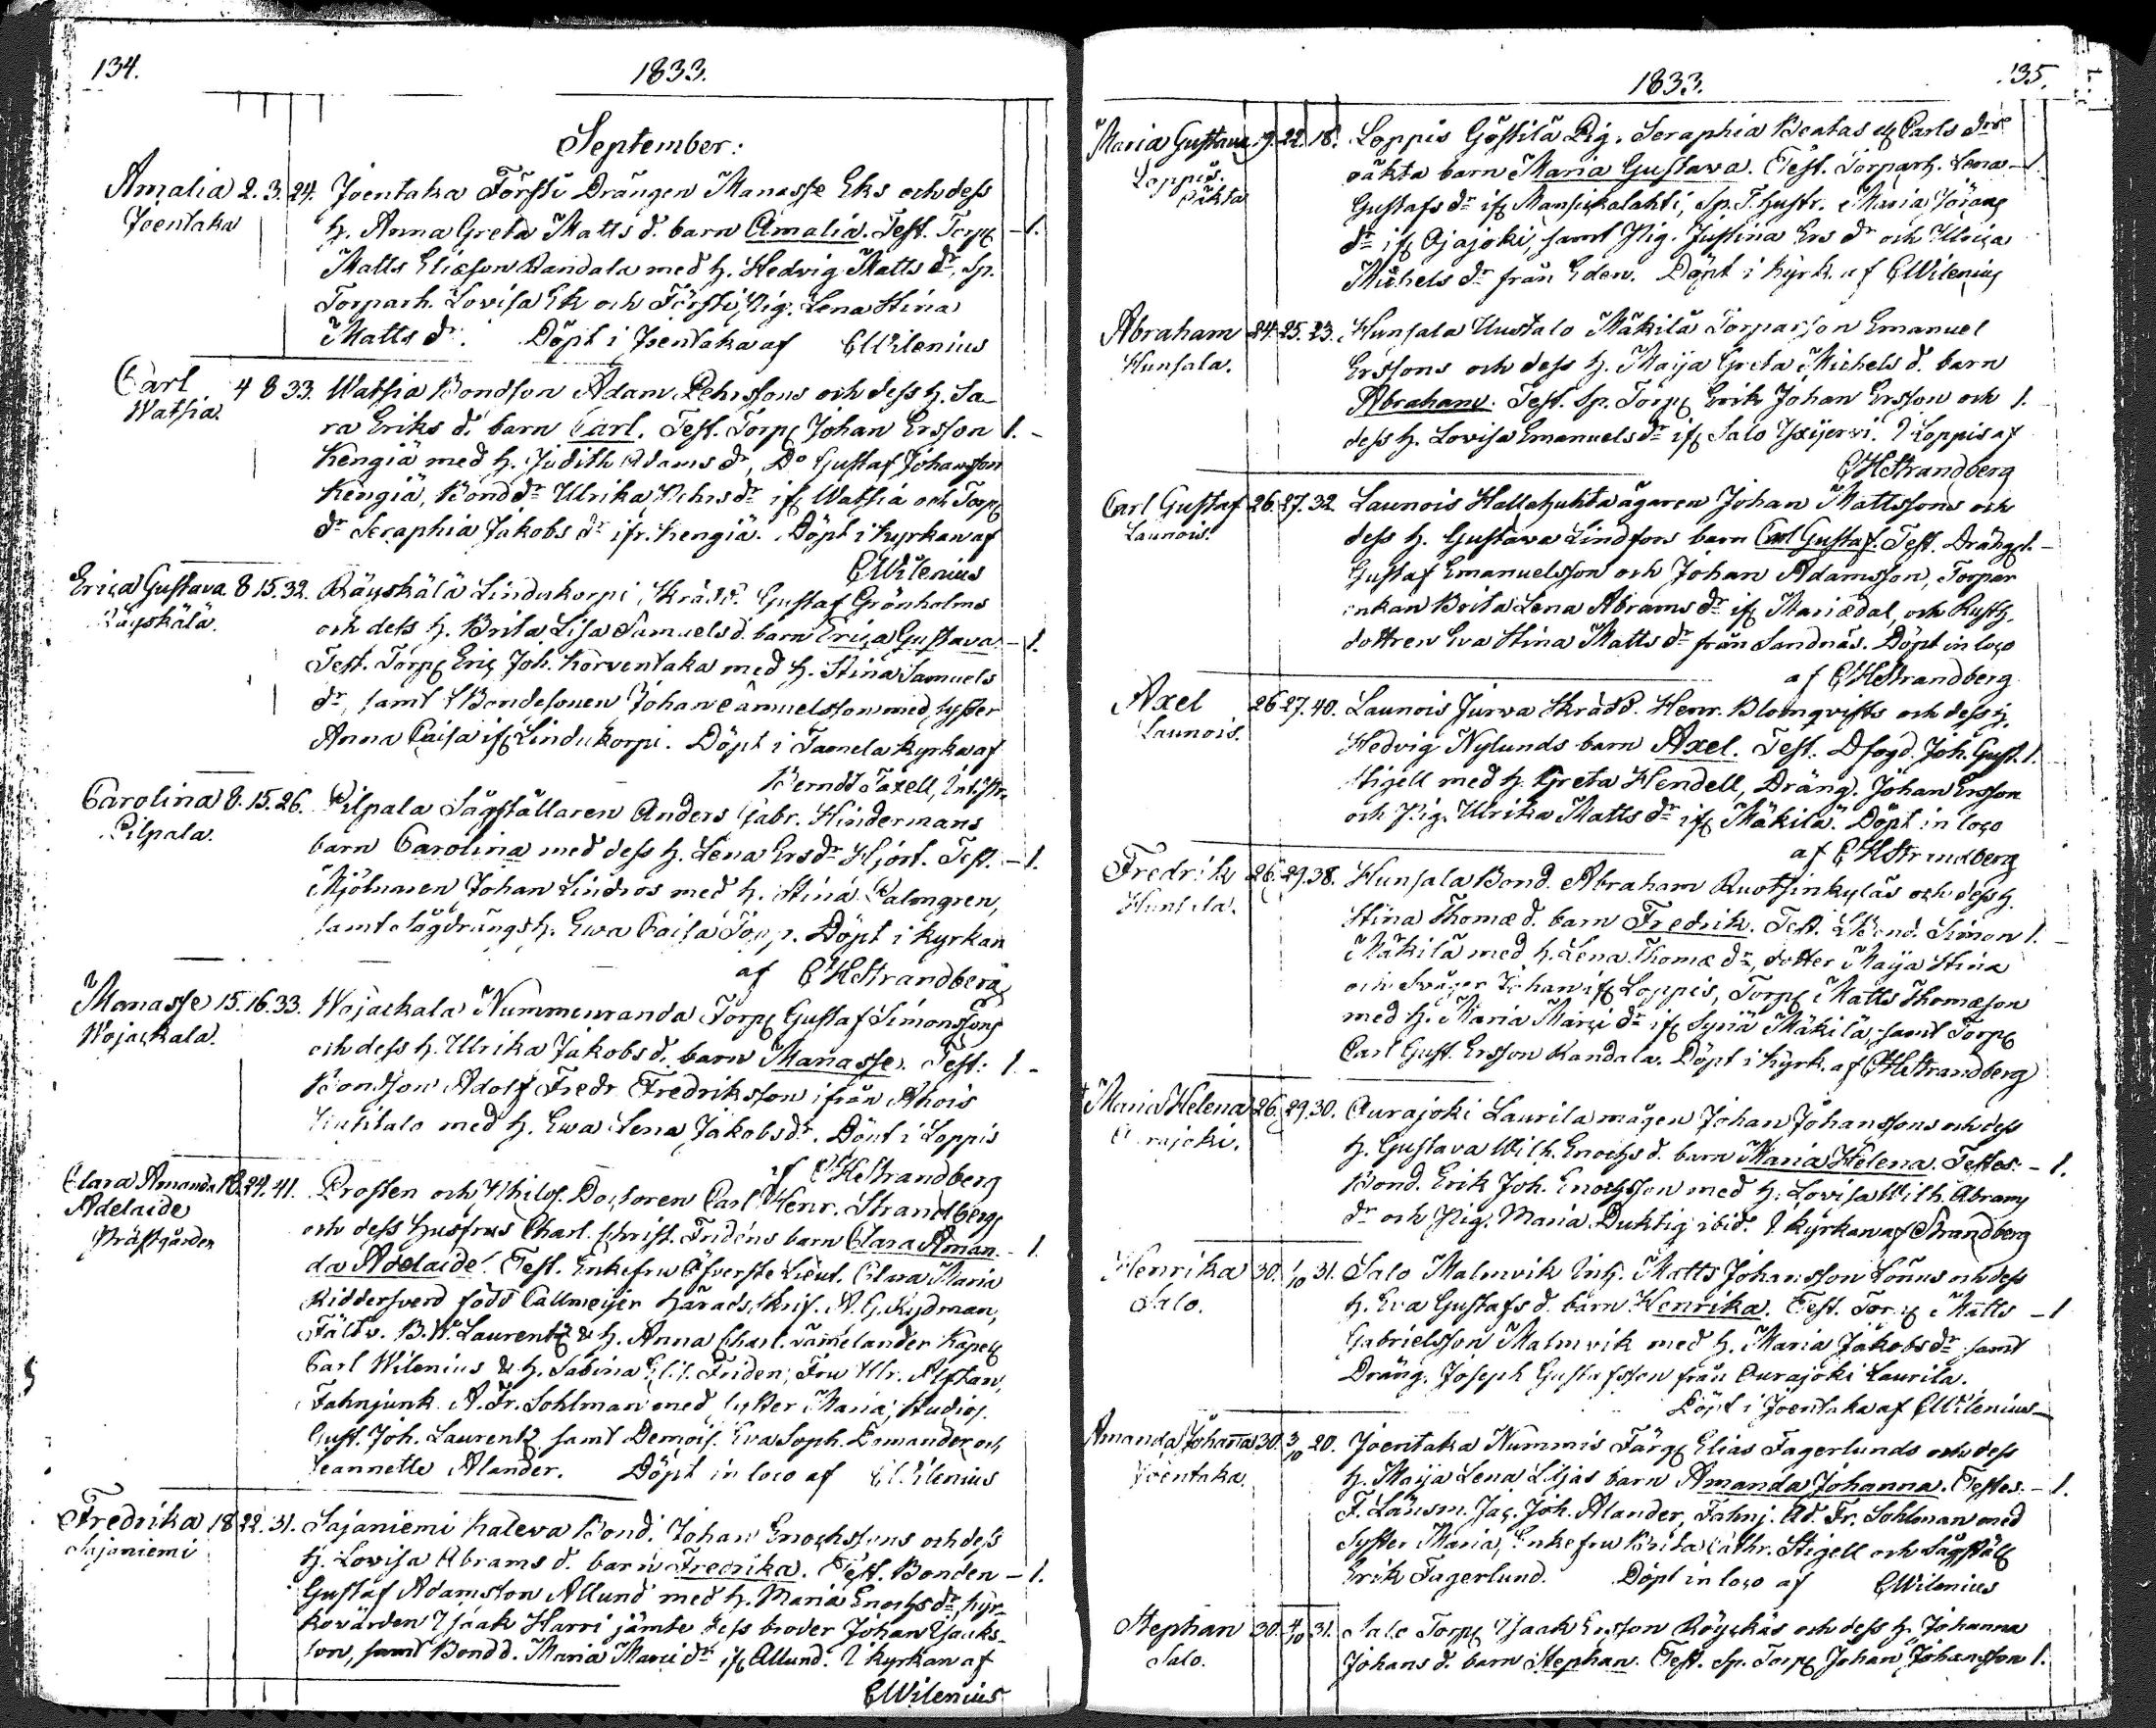 134.
1833.
September:
Amalia 2. 3. 24. Joentaka Förstī Drängen Manasse Eks och dess
Joentaka h. Anna Greta Matts d. barn Amalia. Test. Torp. - 1.
Matts Eliæson Randala med h. Hedvig Matts dr, Sp.
Torparh. Lovisa Ek och Försti, Pig. Lena Stina
Matts dr. Döpt i Joentaka af CWilenius
Carl 4 8 33. Watsia Bondson Adam Pehrssons och dess h. Sa-
Watsia. ra Eriks d. barn Carl. Test. Torp. Johan Ersson 1. -
Kengiä med h. Judith Adams dr, Do Gustaf Johansson
Kengiä, Bond dr Ulrika Pehrs dr ifr Watsia och Torp.
dr Seraphia Jakobs dr ifr. Kengiä. Döpt i Kyrkan af
CWilenius
Erica Gustava 8 15. 32. Räyskälä Lindukorpi, Skrädd. Gustaf Grönholms
Räyskälä. och dess h. Brita Lisa Samuels d. barn Erica Gustava - 1.
Test. Torp. Eric Joh. Korventaka med h. Stina Samuels
dr, samt Bondesonen Johan Samuelsson med syster
Anna Caisa ifr Lindukorpi. Döpt i Tamela Kyrka af
Berndt Taxell,
Carolina 8. 15. 26. Pilpala Sågställaren Anders Gabr. Hindermans
Pilpala. barn Carolina med dess h. Lena Ers dr Hjort. Test. - 1.
Mjölnaren Johan Lindros med h. Stina Palmgren,
samt Sågdrängsh. Ewa Caisa. Döpt i Kyrkan
af CHStrandberg
Manasse 15. 16. 33. Wojackala Nummenranda Torp. Gustaf Simonssons
Wojackala. och dess h. Ulrika Jakobs d. barn Manasse. Test: 1. -
Bondson Adolf Fredr. Fredriksson ifrån Ahois
med h. Ewa Lena Jakobs dr. Döpt i Loppis
af CHStrandberg
Clara Amanda 18. 24. 41. Prosten och Philos. Doctoren Carl Henr. Strandbergs
Adelaide och dess hustrus Charl. Christ. Fridens barn Clara Aman- - 1.
Prästgården da Adelaide. Test. Enkefru Öfverste Lieut. Clara Maria
Riddersverd född Callmeijer Härads skrif. A. G. Rydman,
Fältv. B. W. Laurentz & h. Anna Charl. Tamelander Kapell
Carl Wilenius & h. Sabina Friden, Fru Ulr. Alftan,
Fahnjunk. A. Fr. Sohlman med syster Maria, Studios.
Gust. Joh. Laurentz samt Demois. Eva Soph. och
Jeannette Alander. Döpt in loco af CWilenius
Fredrika 18 22. 31. Sajaniemi Kaleva Bond. Johan Enochssons och dess
Sajaniemi h. Lovisa Abrams d. barn Fredrika. Test. Bonden - 1.
Gustaf Adamsson Allund med h. Maria Enochs dr, Kyr-
kovärden Isaak Harri jämte dess broder Johan Isaaks-
son, samt Bond d. Maria dr ifr Allund. I kyrkan af
CWilenius
1833.
135.
Maria Gustava 19. 22. 18. Loppis Göstilä Pig. Seraphia Beatas Carls drs
Loppis. oäkta barn Maria Gustava. Test. Torparh. Lena - 1.
Oäkta Gustafs dr ifr Mansikalahti, Sp. T. hustr. Maria Jörans
dr ifr Ojajoki, samt Pig. Justina Ers dr och Ulrica
Michels dr från Eden. Döpt i Kyrk. af CWilenius
Abraham 24. 25. 23. Hunsala Uusitalo Mäkilä Torparson Emanuel
Hunsala. Erssons och dess h. Maija Greta Michels d. barn
Abraham. Test. Sp. Torp. Erik Johan Ersson och 1.
dess h. Lovisa Emanuels dr ifr Salo Yxijerwi. I Loppis af
CHStrandberg
Carl Gustaf 26. 27. 32. Launois Hallehuhta ägaren Johan Mattssons och
Launois. dess h. Gustava Lindfors barn Carl Gustaf. Test. Drängr. 1. -
Gustaf Emanuelsson och Johan Adamsson, Torpar
enkan Brita Lena Abrams dr ifr Mariædal, och Rusth.
dottren Eva Stina Matts dr från Sandnäs. Döpt in loco
af CHStrandberg
Axel 26 27. 40. Launois Jurva Skrädd. Henr. Blomqvists och dess h.
Launois. Hedvig Nylunds barn Axel. Test. Dfogd. Joh. Gust. 1.
Stigell med h. Greta Hendell, Dräng. Johan Ersson
och Pig. Ulrika Matts dr ifr Mäkilä. Döpt in loco
af CHStrandberg
Fredrik 26. 29. 38. Hunsala Bond. Abraham Ruotsinkyläs och dess h.
Hunsala. Stina Thomæ d. barn Fredrik. Test. Bond. Simon 1.
Mäkilä med h. Lena Thomæ dr, dotter Maija Stina
och Svåger Johan ifr Loppis, Torp. Matts Thomæson
med h. Maria dr ifr Syriä Mäkilä, samt Torp.
Carl Gust. Ersson Randala. Döpt i Kyrk. af CHStrandberg
† Maria Helena 26. 29. 30. Ourajoki Laurila mågen Johan Johanssons och dess
Ourajoki. h. Gustava Wilh. Enochs d. barn Maria Helena. Testes. - 1.
Bond. Erik Joh. Enochsson med h. Lovisa Wilh. Abrams
dr och Pig. Maria Duktig ibid. I Kyrkan af Strandberg
Henrika 30. 1/10 31. Salo Malmvik Inh. Matts Johansson Lönus och dess
Salo. h. Eva Gustafs d. barn Henrika. Test. Torp. Matts - 1
Gabrielsson Malmvik med h. Maria Jakobs dr samt
Dräng. Joseph Gustafsson från Ourajoki Laurila.
Döpt i Joentaka af CWilenius
Amanda Johanna 30. 3/10 20. Joentaka Nummis Färg. Elias Fagerlunds och dess
Joentaka. h. Maija Lena Liljas barn Amanda Johanna. Testes. - 1.
F. Länsm. Jac. Joh. Alander, Fahnj. Ad. Fr. Sohlman med
Syster Maria, Enkefru Brita Cathr. Stigell och Sågställ.
Erik Fagerlund. Döpt in loco af CWilenius
Stephan 30. 4/10 31. Salo Torp. Isaak Ersson Röyskäs och dess h. Johanna
Salo. Johans d. barn Stephan. Test. Sp. Torp. Johan Johansson 1.